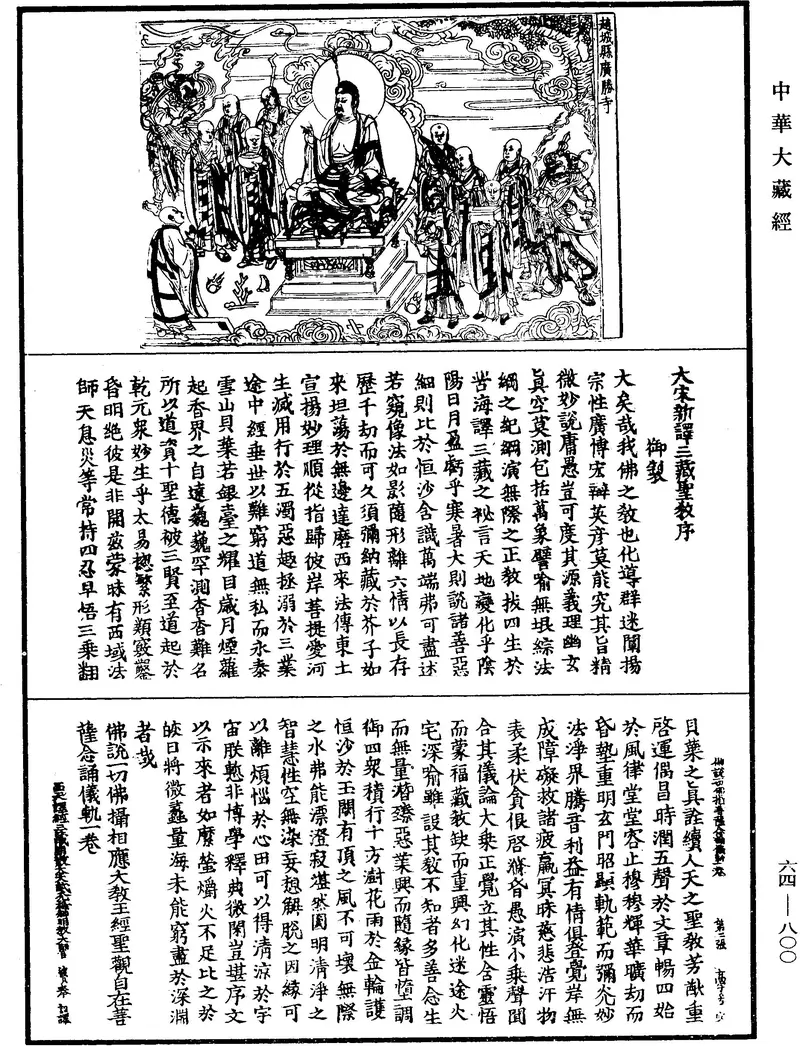 中華大藏經
趙城縣廣勝寺
大宋新譯三藏聖教序
御製
大矣哉我佛之教也化導群迷闡揚
宗性廣博宏辯英彦莫能究其旨精
微妙說庸愚豈可度其源義理幽玄
真空莫測包括萬象譬喻無垠綜法
網之紀綱演無際之正教拔四生於
苦海譯三藏之祕言天地變化乎陰
陽日月盈虧乎寒暑大則說諸善惡
細則比於恒沙含識萬端弗可盡述
若窺像法如影隨形離六情以長存
歷千劫而可久須彌納藏於芥子如
來坦蕩於無邊達磨西來法傳東土
宣揚妙理順從指歸彼岸菩提愛河
生滅用行於五濁惡趣拯溺於三業
途中經垂世以難窮道無私而永泰
雪山貝葉若銀臺之耀目歲月煙蘿
起香界之自遠巍巍罕測杳杳難名
所以道資十聖德被三賢至道起於
乾元衆妙生乎太易揔繁形類竅鑿
昏明絶彼是非開茲蒙昧有西域法
師天息災等常持四忍早悟三乘翻
貝葉之真詮續人天之聖教芳猷重
啓運偶昌時潤五聲於文章暢四始
於風律堂堂容止穆穆輝華曠劫而
昏墊重明玄門昭顯軌範而彌光妙
法淨界騰音利益有情俱登覺岸無
成障礙救諸疲羸冥昧慈悲浩汗物
表柔伏貪佷啓滌昏愚演小乘聲聞
合其儀論大乘正覺立其性含靈悟
而蒙福藏教缺而重興幻化迷途火
宅深喻雖設其教不知者多善念生
而無量潛臻惡業興而隨緣皆墮調
御四衆積行十方澍花雨於金輪護
恒沙於玉闕有頂之風不可壞無際
之水弗能漂澄寂湛然圓明清淨之
智慧性空無染妄想解脫之因緣可
以離煩惱於心田可以得清涼於宇
宙朕慙非博學釋典微閑豈堪序文
以示來者如麼螢爝火不足比之於
皎日將微蠡量海未能窮盡於深淵
者哉
佛說一切佛攝相應大教王經聖觀自在菩
薩念誦儀軌一卷
六四—八〇〇